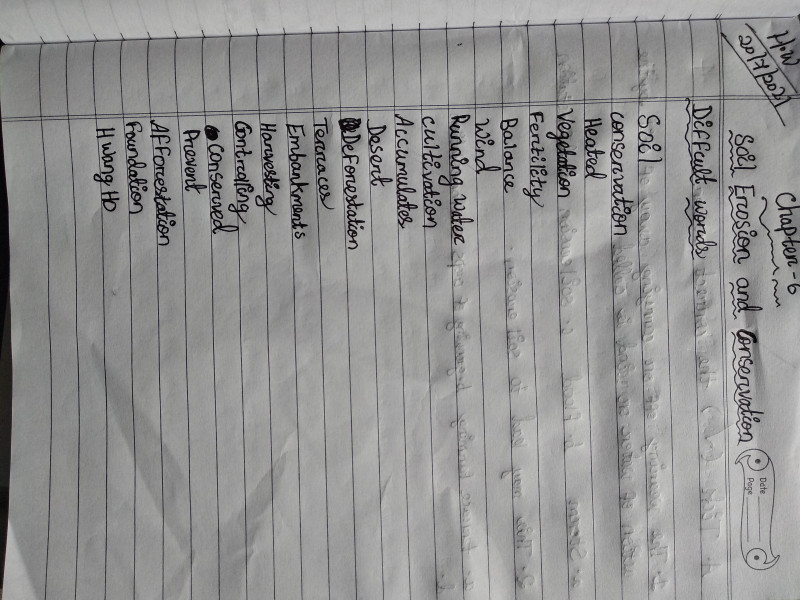 H.W
20/7/2021
Chapter-6
Soil Erosion and Conservation
Date
Page
Difficult words
Soil
conservation
Heated
Vegetation
Fertility
Balance
Wind
Running water
cultivation
Accumulates
Desert
Deforestation
Terraces
Embankments
Harvesting
Controlling
Conserved
Prevent
Afforestation
Foundation
Hwang HO